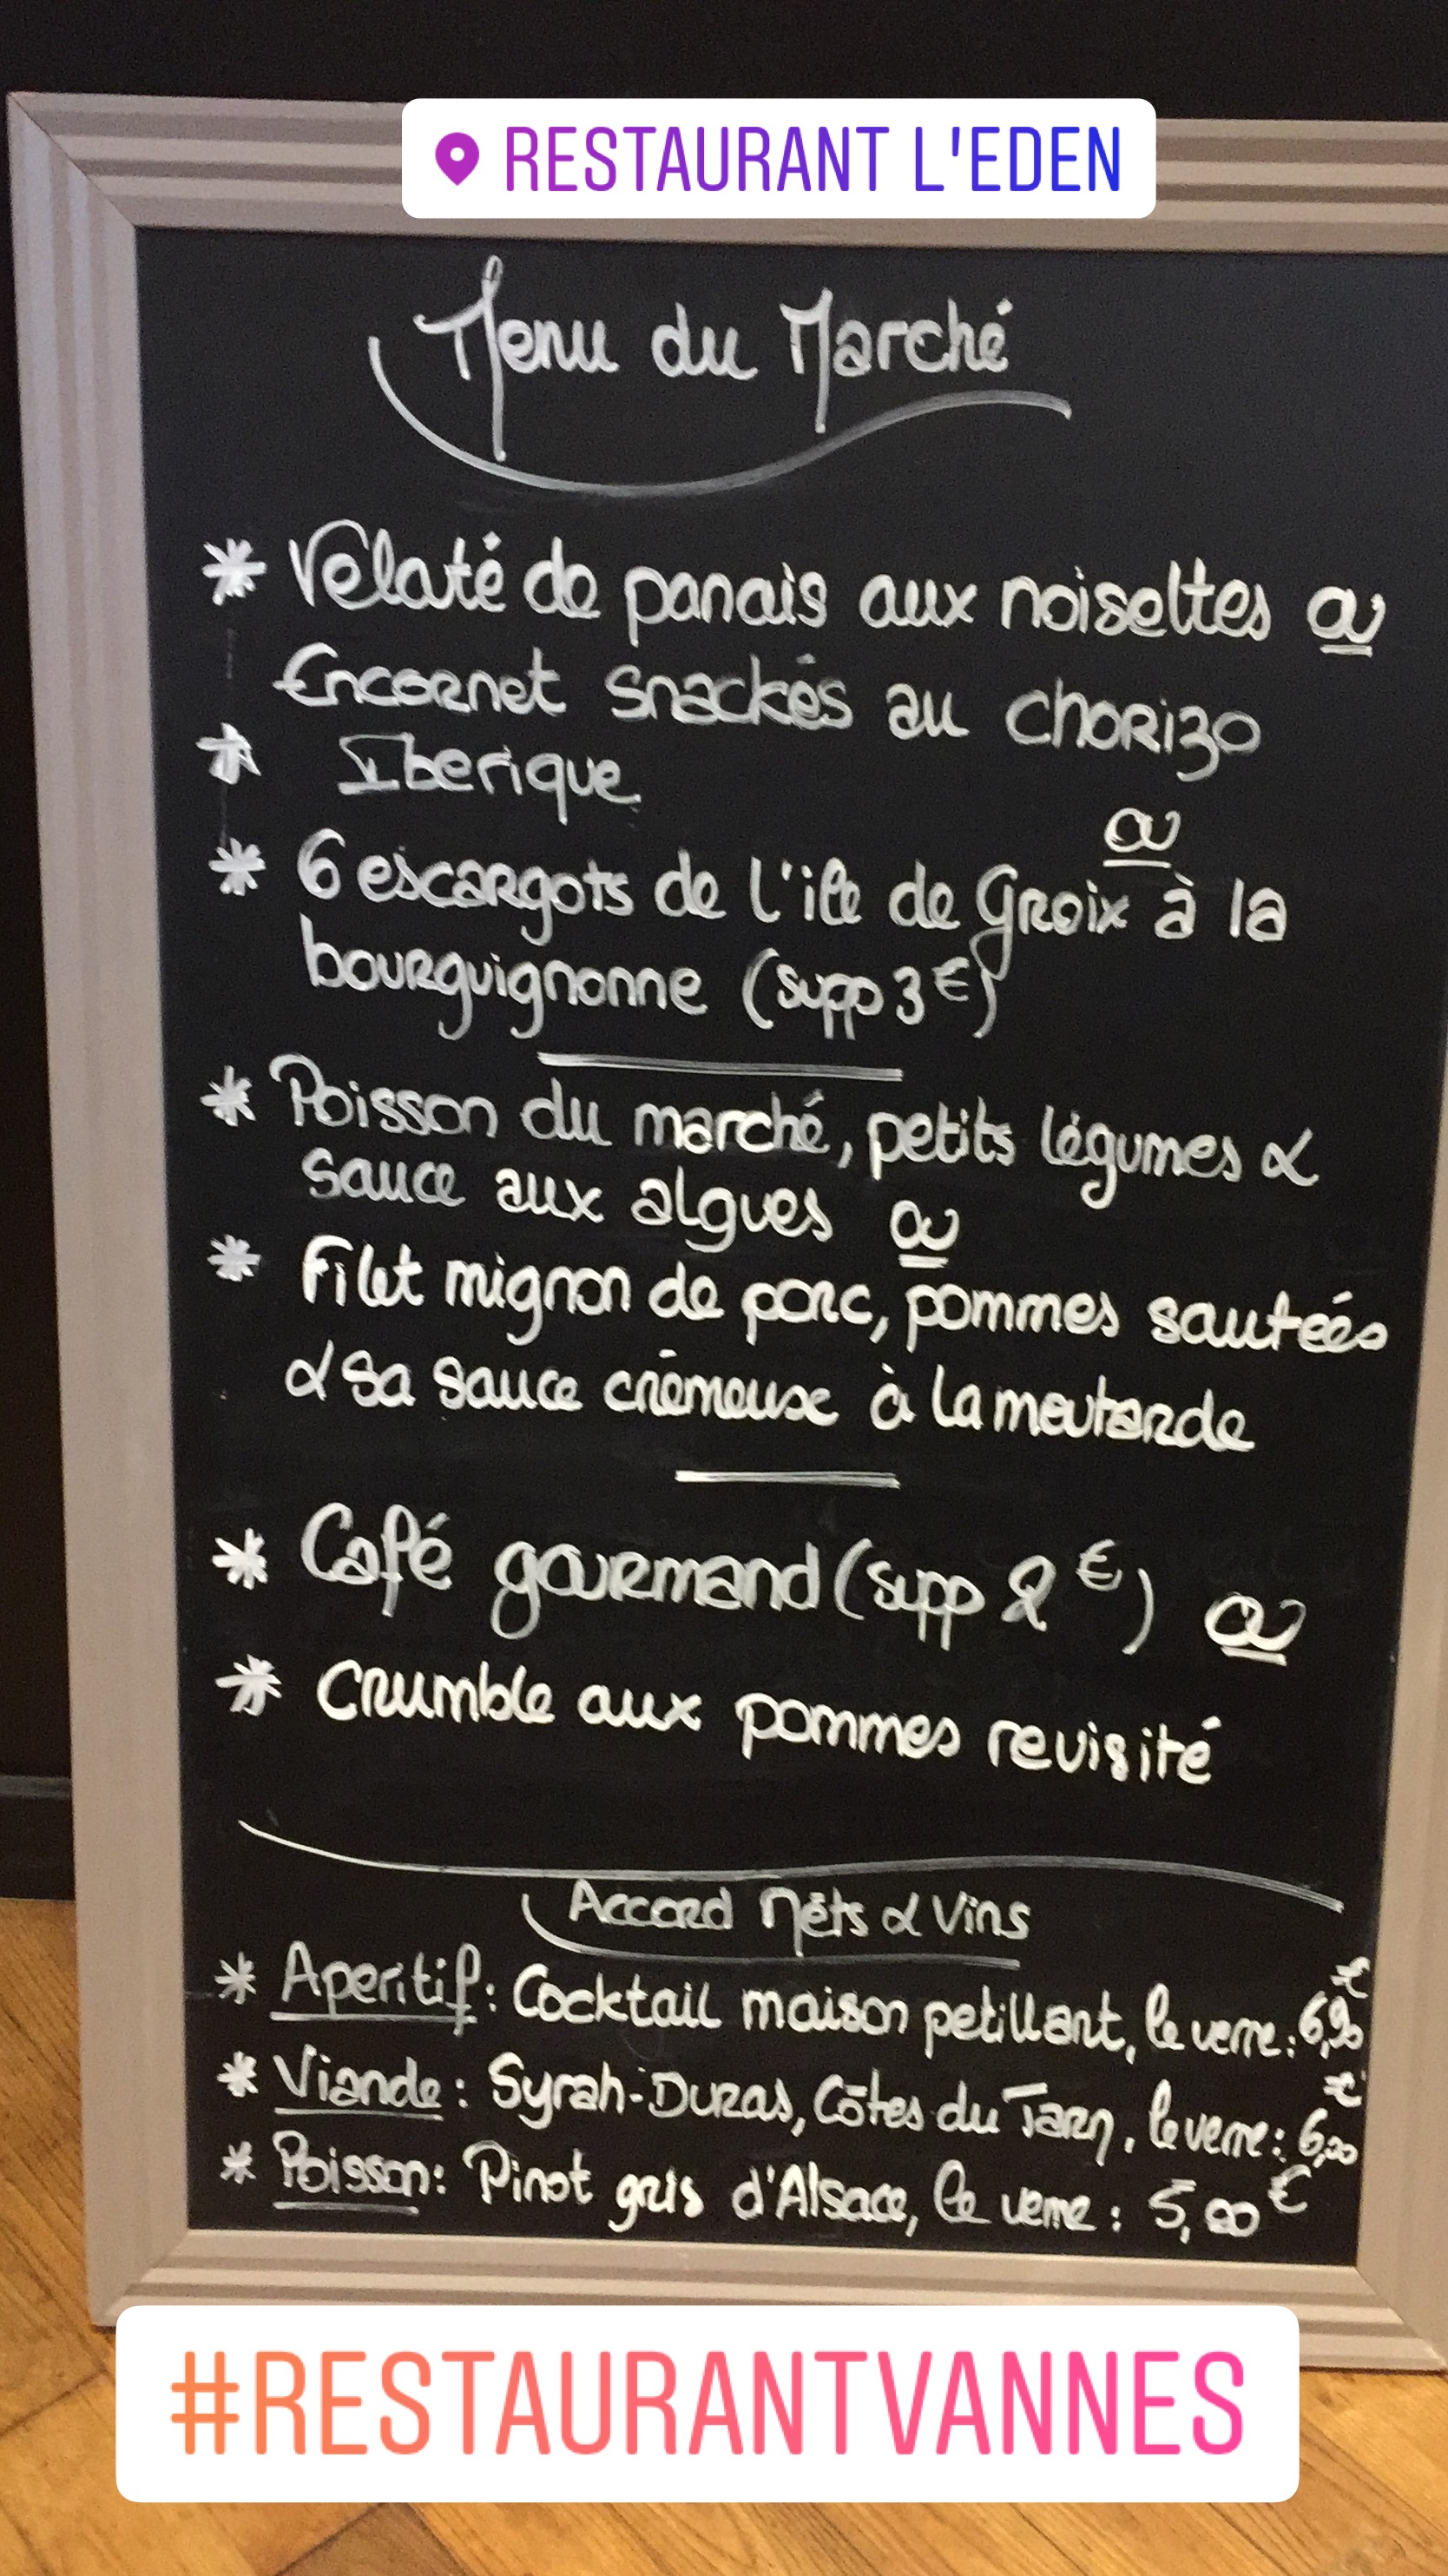 RESTAURANT L'EDEN
Menu du Marché
* Velaté de panais aux noisettes ou
Encornet snackés au chorizo
* Iberique
ou
* 6 escargots de l'ile de Groix à la
bourguignonne (supp 3€)
* Poisson du marché, petits légumes &
sauce aux algues ou
* Filet mignon de porc, pommes sautées
& sa sauce crémeuse à la moutarde
* Café gourmand (supp 2€) ou
* Crumble aux pommes revisité
Accord Mêts & Vins
* Aperitif: Cocktail maison petillant, le verre: 6,90€
* Viande: Syrah-Duras, Côtes du Tarn, le verre: €
* Poisson: Pinot gris d'Alsace, le verre: 5,00€
#RESTAURANTVANNES